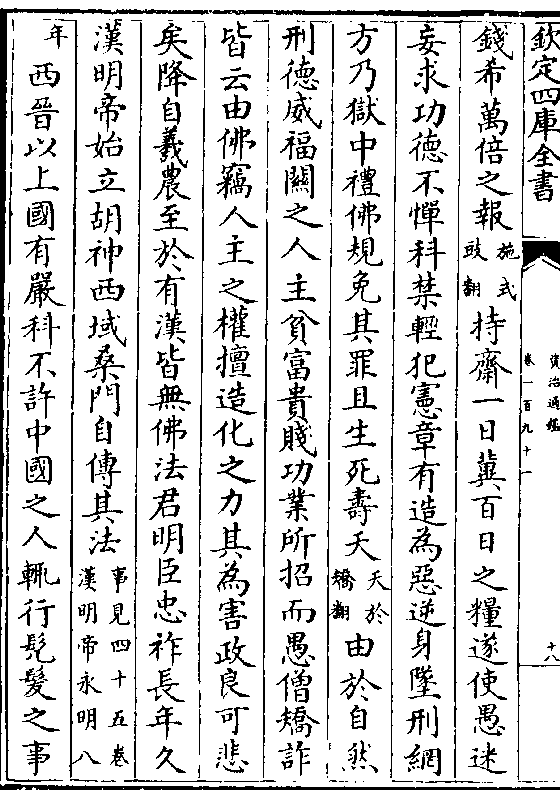 欽定四庫全書
資治通鑑
卷一百九十一
十八
錢希萬倍之報施式豉翻持齋一日冀百日之糧遂使愚迷
妄求功德不憚科禁輕犯憲章有造為惡逆身墜刑網
方乃獄中禮佛規免其罪且生死壽夭夭於矯翻由於自然
刑德威福關之人主貧富貴賤功業所招而愚僧矯詐
皆云由佛竊人主之權擅造化之力其為害政良可悲
矣降自羲農至於有漢皆無佛法君明臣忠祚長年久
漢明帝始立胡神西域桑門自傳其法事見四十五卷漢明帝永明八
年西晉以上國有嚴科不許中國之人輒行髡髮之事